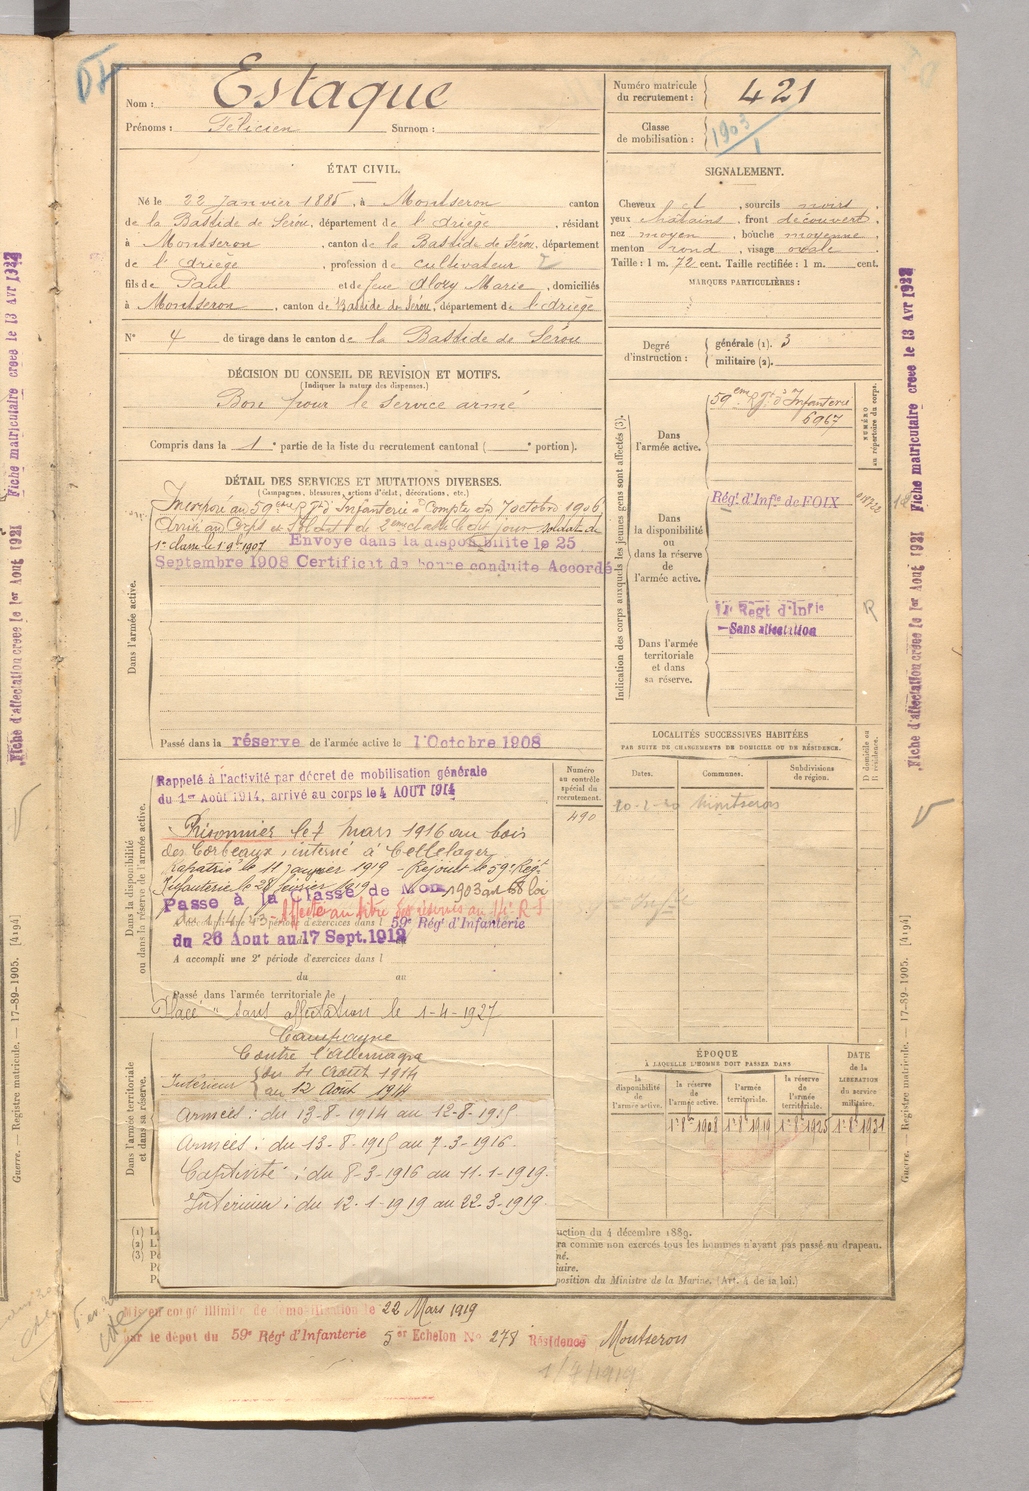 Nom : Estaque
Prénoms : Félicien Surnom :
Numéro matricule
du recrutement : 421
Classe
de mobilisation : 1903
ÉTAT CIVIL.
Né le 22 Janvier 1885, à Montseron canton
de la Bastide de Sérou, département de l'Ariège, résidant
à Montseron, canton de la Bastide de Sérou, département
de l'Ariège, profession de cultivateur
fils de Paul et de feue Alozy Marie, domiciliés
à Montseron, canton de Bastide de Sérou, département de l'Ariège
N° 4 de tirage dans le canton de la Bastide de Sérou
SIGNALEMENT.
Cheveux et, sourcils noirs
yeux chatains, front découvert,
nez moyen, bouche moyenne,
menton rond, visage ovale.
Taille : 1 m. 72 cent. Taille rectifiée : 1 m. cent.
MARQUES PARTICULIÈRES :
Degré
d'instruction :
générale (1). 3
militaire (2).
DÉCISION DU CONSEIL DE REVISION ET MOTIFS.
(Indiquer la nature des dispenses.)
Bon pour le service armé
Compris dans la 1e partie de la liste du recrutement cantonal ( e portion).
DÉTAIL DES SERVICES ET MUTATIONS DIVERSES.
(Campagnes, blessures, actions d'éclat, décorations, etc.)
Dans l'armée active.
Incorporé au 59ème Rgt d'Infanterie à Compter du 7 octobre 1906
Arrivé au Corps et Soldat de 2eme classe le dit jour soldat de
1e classe le 1 9bre 1907 Envoyé dans la disponibilité le 25
Septembre 1908 Certificat de bonne conduite Accordé
Passé dans la réserve de l'armée active le 1 Octobre 1908
Dans la disponibilité
ou dans la réserve de l'armée active.
Numéro
au contrôle
spécial du
recrutement.
490
Rappelé à l'activité par décret de mobilisation générale
du 1er Août 1914, arrivé au corps le 4 AOUT 1914
Prisonnier le 7 Mars 1916 au bois
des Corbeaux, interné à Cellelager
Rapatrié le 11 janvier 1919 - Rejoint le 59e Régt
Infanterie le 28 février 1919
Passé à la Classe de Mob. 1903 art 58 loi
du 1/4/23 - Affecté au titre des réserves au R I
A accompli une 1e période d'exercices dans l 59e Régt d'Infanterie
du 26 Aout au 17 Sept. 1912
A accompli une 2e période d'exercices dans l
du au
Passé dans l'armée territoriale le
Placé "sans affectation le 1-4-1927
Dans l'armée territoriale
et dans sa réserve.
Campagne
Contre l'Allemagne
Intérieur du 4 Août 1914
au 12 Août 1914
Armées : du 13-8-1914 au 12-8-1915
Armées : du 13-8-1915 au 7-3-1916.
Captivité : du 8-3-1916 au 11-1-1919.
Intérieur : du 12-1-1919 au 22-3-1919.
Indication des corps auxquels les jeunes gens sont affectés (3).
NUMÉRO
au répertoire du corps.
Dans
l'armée active.
59eme Rgt d'Infanterie
6967
Dans
la disponibilité
ou
dans la réserve
de
l'armée active.
Régt d'Infie de FOIX
Dans l'armée
territoriale
et dans
sa réserve.
Régt d'Infie
Sans affectation
R
LOCALITÉS SUCCESSIVES HABITÉES
PAR SUITE DE CHANGEMENTS DE DOMICILE OU DE RÉSIDENCE.
Dates. Communes. Subdivisions
de région.
D domicile ou
R résidence.
Montseron
ÉPOQUE
À LAQUELLE L'HOMME DOIT PASSER DANS
la
disponibilité
de
l'armée active.
la réserve
de
l'armée active.
l'armée
territoriale.
la réserve
de
l'armée
territoriale.
DATE
de la
LIBÉRATION
du service
militaire.
1er 8bre 1908 1er 8bre 1919 1er 8bre 1925 1er 8bre 1931
(1)
(2)
(3)
uction du 4 décembre 1889.
ra comme non exercés tous les hommes n'ayant pas passé au drapeau.
position du Ministre de la Marine. (Art. 4 de la loi.)
Mis en congé illimité de démobilisation le 22 Mars 1919
par le dépôt du 59e Régt d'Infanterie 5er Echelon No 278 Résidence Montseron
Fiche d'affectation créée le 1er Aout 1921 Fiche matriculaire créée le 13 Avr 1932
Guerre. — Registre matricule. — 17-89-1905. [4194]
Fiche d'affectation créée le 1er Aout 1921 Fiche matriculaire créée le 13 Avr 1932
Guerre. — Registre matricule. — 17-89-1905. [4194]